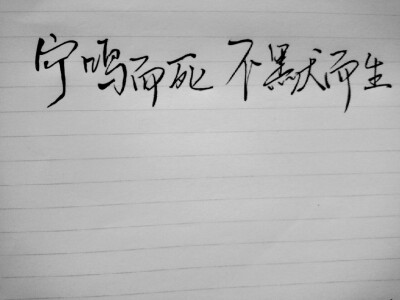 宁鸣而死 不默而生